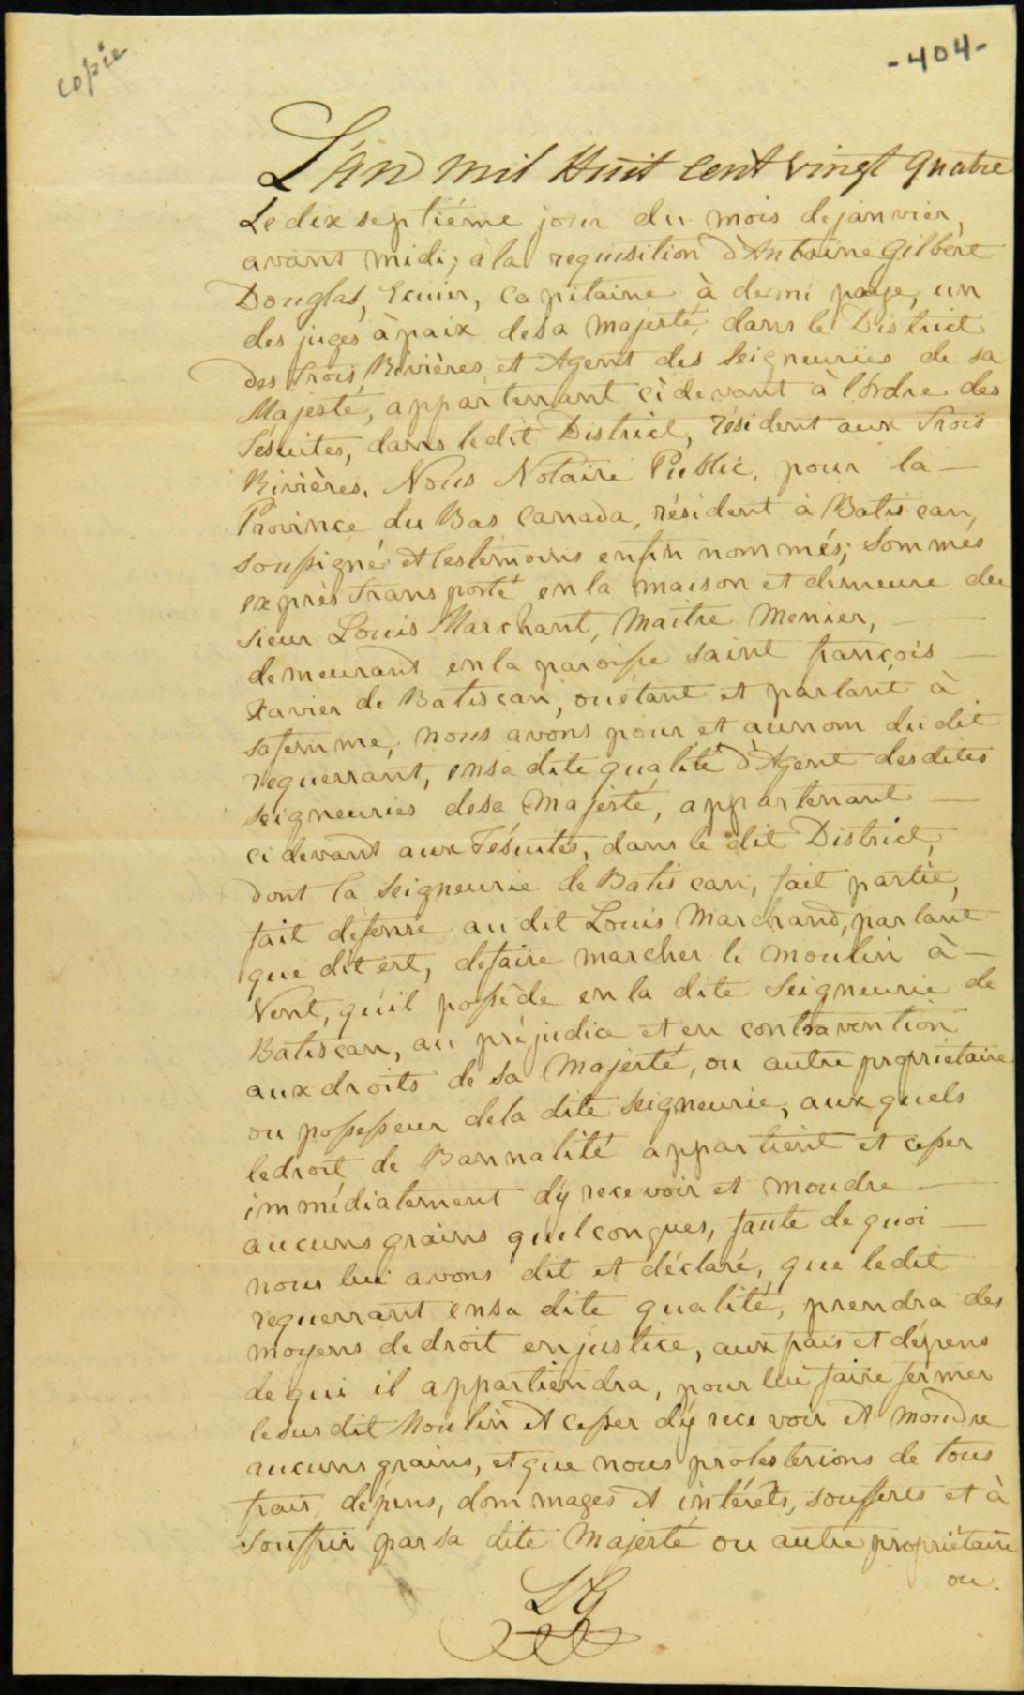 copie
-404-
L'an mil Huit cent vingt quatre
Le dix septiéme jour du mois de janvier,
avant midi; à la requisition d'Antoine Gilbert
Douglas, Ecuier, capitaine à demi paye, un
des juges à paix desa Majesté, dans le District
des Trois Rivières, et Agent des Seigneuries de sa
Majesté, appartenant ci devant à l'ordre des
Jésuites, dans ledit District, résident aux Trois
Rivières. Nous Notaire Public, pour la —
Province du Bas Canada, résident à Batiscan,
soussigné et les témoins enfin nommés; Sommes
exprès transporté en la maison et demeure du
sieur Louis Marchant, Maitre Menier, —
demeurant en la paroisse Saint françois —
Xavier de Batiscan, ou étant et parlant à
sa femme, nous avons pour et au nom du dit
requerrant, ensa dite qualité d'Agent desdites
seigneuries desa Majesté, appartenant —
ci devant aux Jésuites, dans le dit District,
dont la Seigneurie de Batiscan, fait partie,
fait defense au dit Louis Marchand, parlant
que dit est, defaire marcher le moulin à —
Vent, qu'il possède en la dite Seigneurie de
Batiscan, au préjudice et en contravention
aux droits de sa Majesté, ou autre propriétaire
ou possesseur dela dite Seigneurie, aux quels
le droit de Bannalité appartient et cesser
immédiatement d'y recevoir et moudre —
aucuns grains quelconques, faute de quoi —
nous lui avons dit et déclaré, que ledit
requerrant ensa dite qualité, prendra des
moyens de droit en justice, aux frais et dépens
de qui il appartiendra, pour lui faire fermer
le susdit Moulin et cesser d'y recevoir et moudre
aucuns grains, et que nous protesterions de tous
frais, dépens, dommages et intérêts, soufferts et à
souffrir par sa dite Majesté ou autre propriétaire
ou.